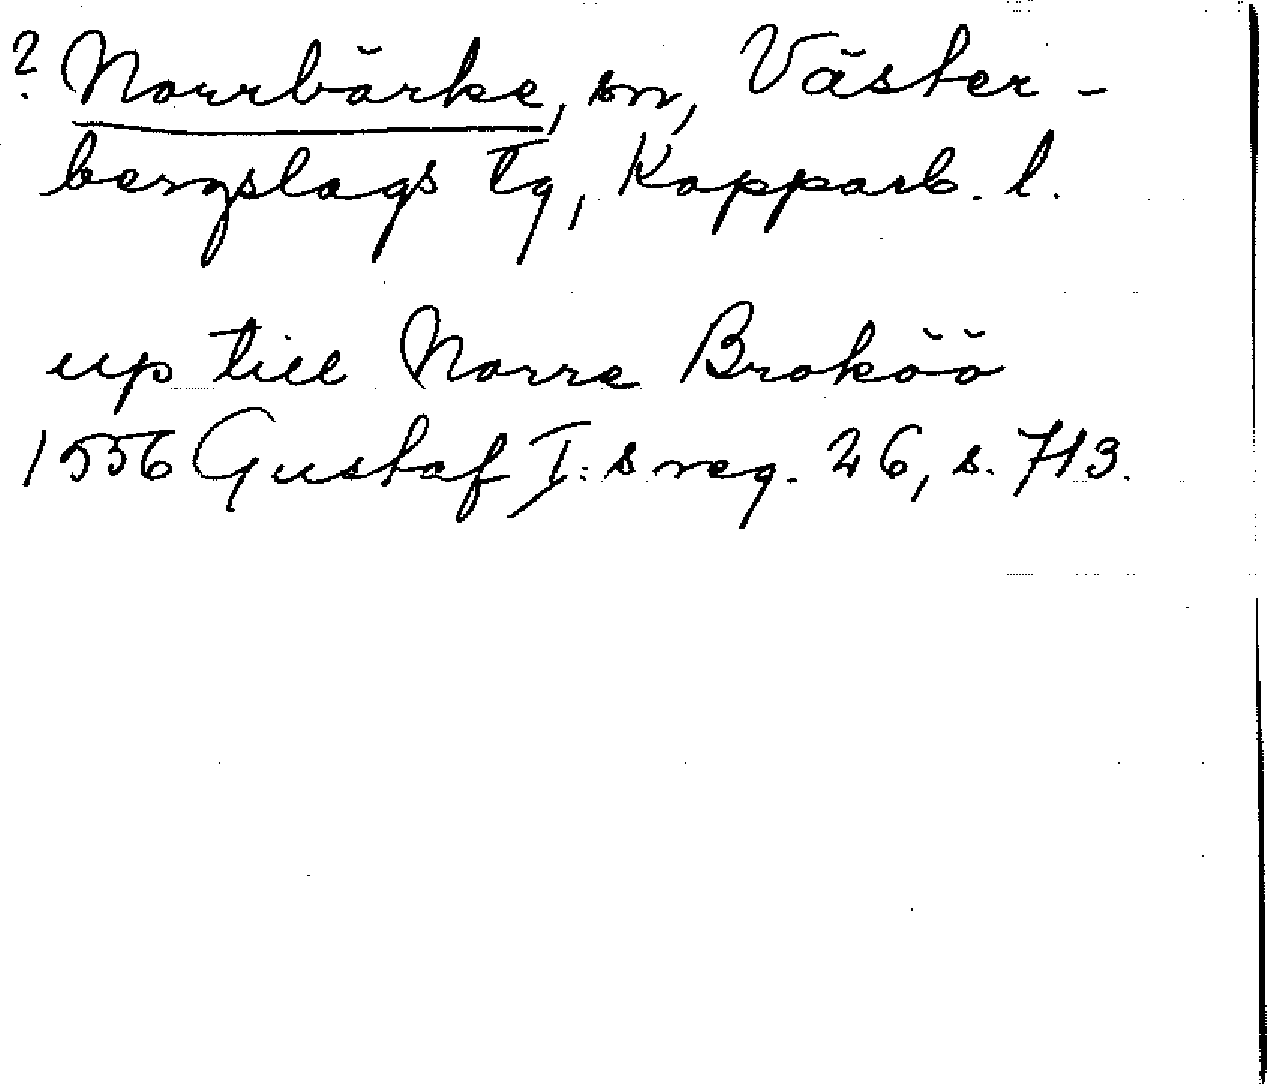 ? Norrbärke, sn, Väster-
bergslags tg, Kopparb. l.
up till Norre Broköö
1556 Gustaf I:s reg. 26, s. 713.